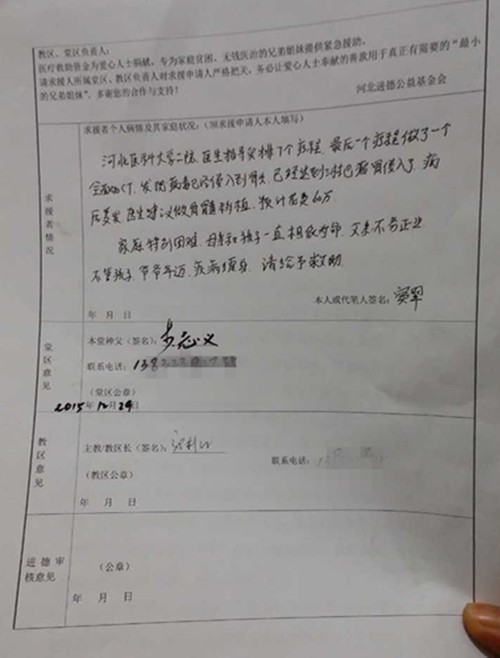 教区、堂区负责人：
医疗救助资金为爱心人士捐献，专为家庭贫困、无钱医治的兄弟姐妹提供紧急援助。
请求援人所属堂区、教区负责人对求援申请人严格把关，务必让爱心人士奉献的善款用于真正有需要的“最小
的兄弟姐妹”。多谢您的合作与支持！
河北进德公益基金会
求援者情况
求援者个人病情及其家庭状况：（须求援申请人本人填写）
河北医科大学二院，医生指导安排了个疗程，最后一个疗程做了一个
全面的CT，发现病毒已经侵入到骨头，已经达到
医生建议做骨髓移植，预计花费60万
家庭特别困难，母亲和孩子一直相依为命，父亲不务正业
不管孩子，爷爷年迈，疾病缠身，请给予救助。
本人或代笔人签名：
年 月 日
堂区意见
本堂神父（签名）：
联系电话：138
（堂区公章）
2015年12月29日
教区意见
主教/教区长（签名）：
联系电话：
（教区公章）
年 月 日
进德审核意见
（公章）
年 月 日